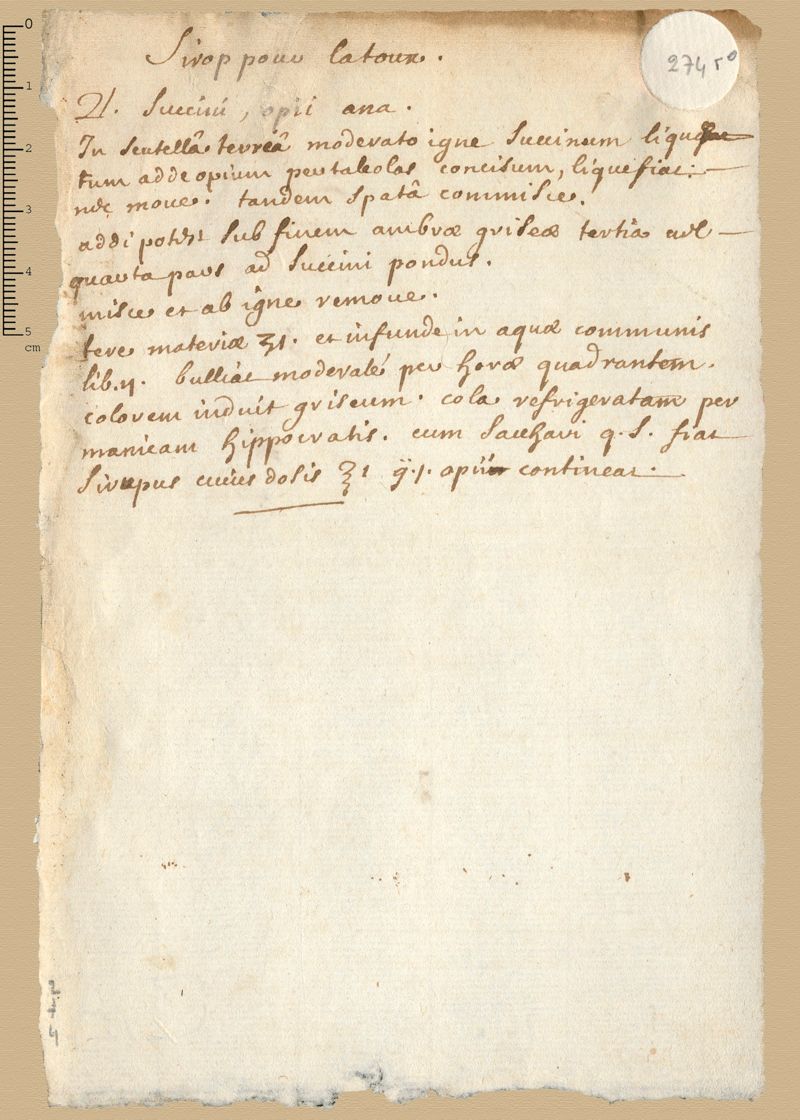 274 r°
Sirop pour la toux.
♃. Succini, opii ana.
In scutellâ terreâ moderato igne succinum liquefac
tum adde opium per taleolas concisum, liquefiat.
nec moue. tandem spatâ commisce.
addi potest sub finem ambræ griseæ tertia vel
quarta pars ad succini pondus.
misce et ab igne remoue.
tere materiæ ʒ1. et infunde in aquæ communis
lib.ij. bulliat moderatè per horæ quadrantem.
colorem induit griseum. cola refrigeratam per
manicam hippocratis. cum sacchari q.s. fiat
sirupus cuius dosis ℥1 g.j. opii contineat.
0
1
2
3
4
5
cm